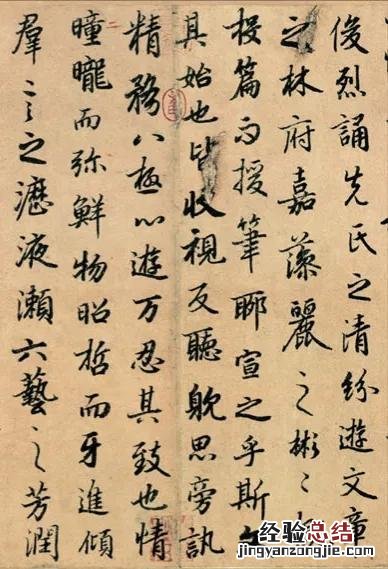 俊烈誦先民之清紛遊文章
之林府嘉藻麗之彬〻
投篇而援筆聊宣之乎斯
其始也皆收視反聽耽思旁訊
精務八極心遊万忍其致也情
曈曨而弥鮮物昭晢而牙進傾
羣言之瀝液漱六藝之芳潤
经验总结
www.jingyanzongjie.com